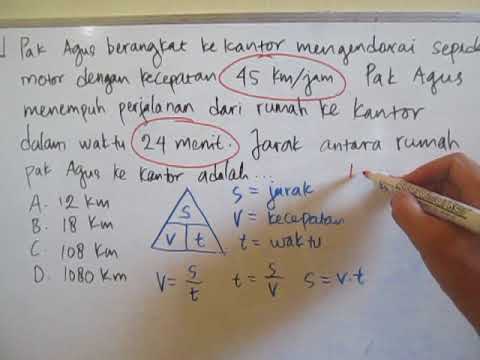 Pak Agus berangkat ke kantor mengendarai sepeda
motor dengan kecepatan 45 km/jam Pak Agus
menempuh perjalanan dari rumah ke kantor
dalam waktu 24 menit. Jarak antara rumah
pak Agus ke kantor adalah ...
A. 12 km
B. 18 km
C. 108 km
D. 1080 km
S
V t
S = jarak
V = kecepatan
t = waktu
V = S/t t = S/V S = V.t